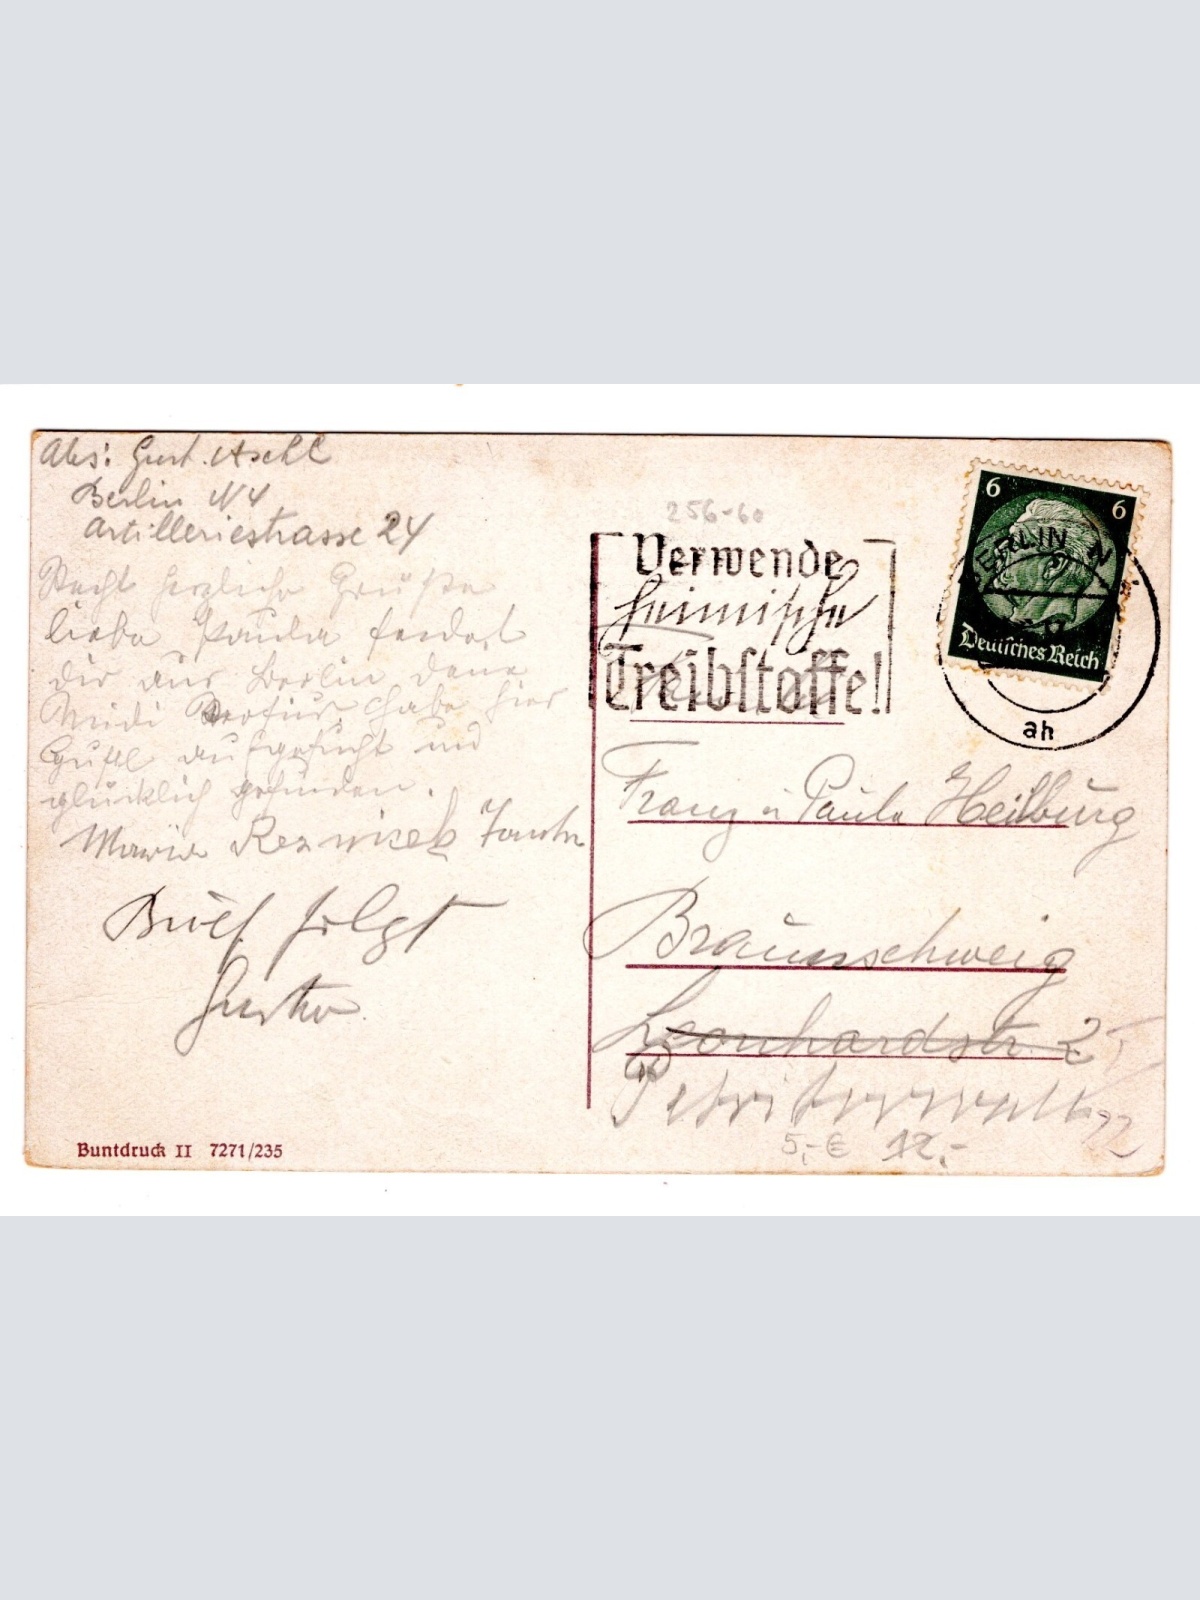 Abs: Gust. Aschl
Berlin N4
Artilleriestrasse 24
Recht herzliche Grüße
liebe Paula sendet
dir aus Berlin deine
Midi habe hier
Gustl aufgesucht und
glücklich gefunden.
Maria Reznicek Tante
Brief folgt
Buntdruck II 7271/235
256-60
Verwende
heimische
Treibstoffe!
6 6
BERLIN N
Deutsches Reich
ah
Franz u Paula Heilburg
Braunschweig
Leonhardstr. 2
Petritorwall 22
5,-€ 12,-